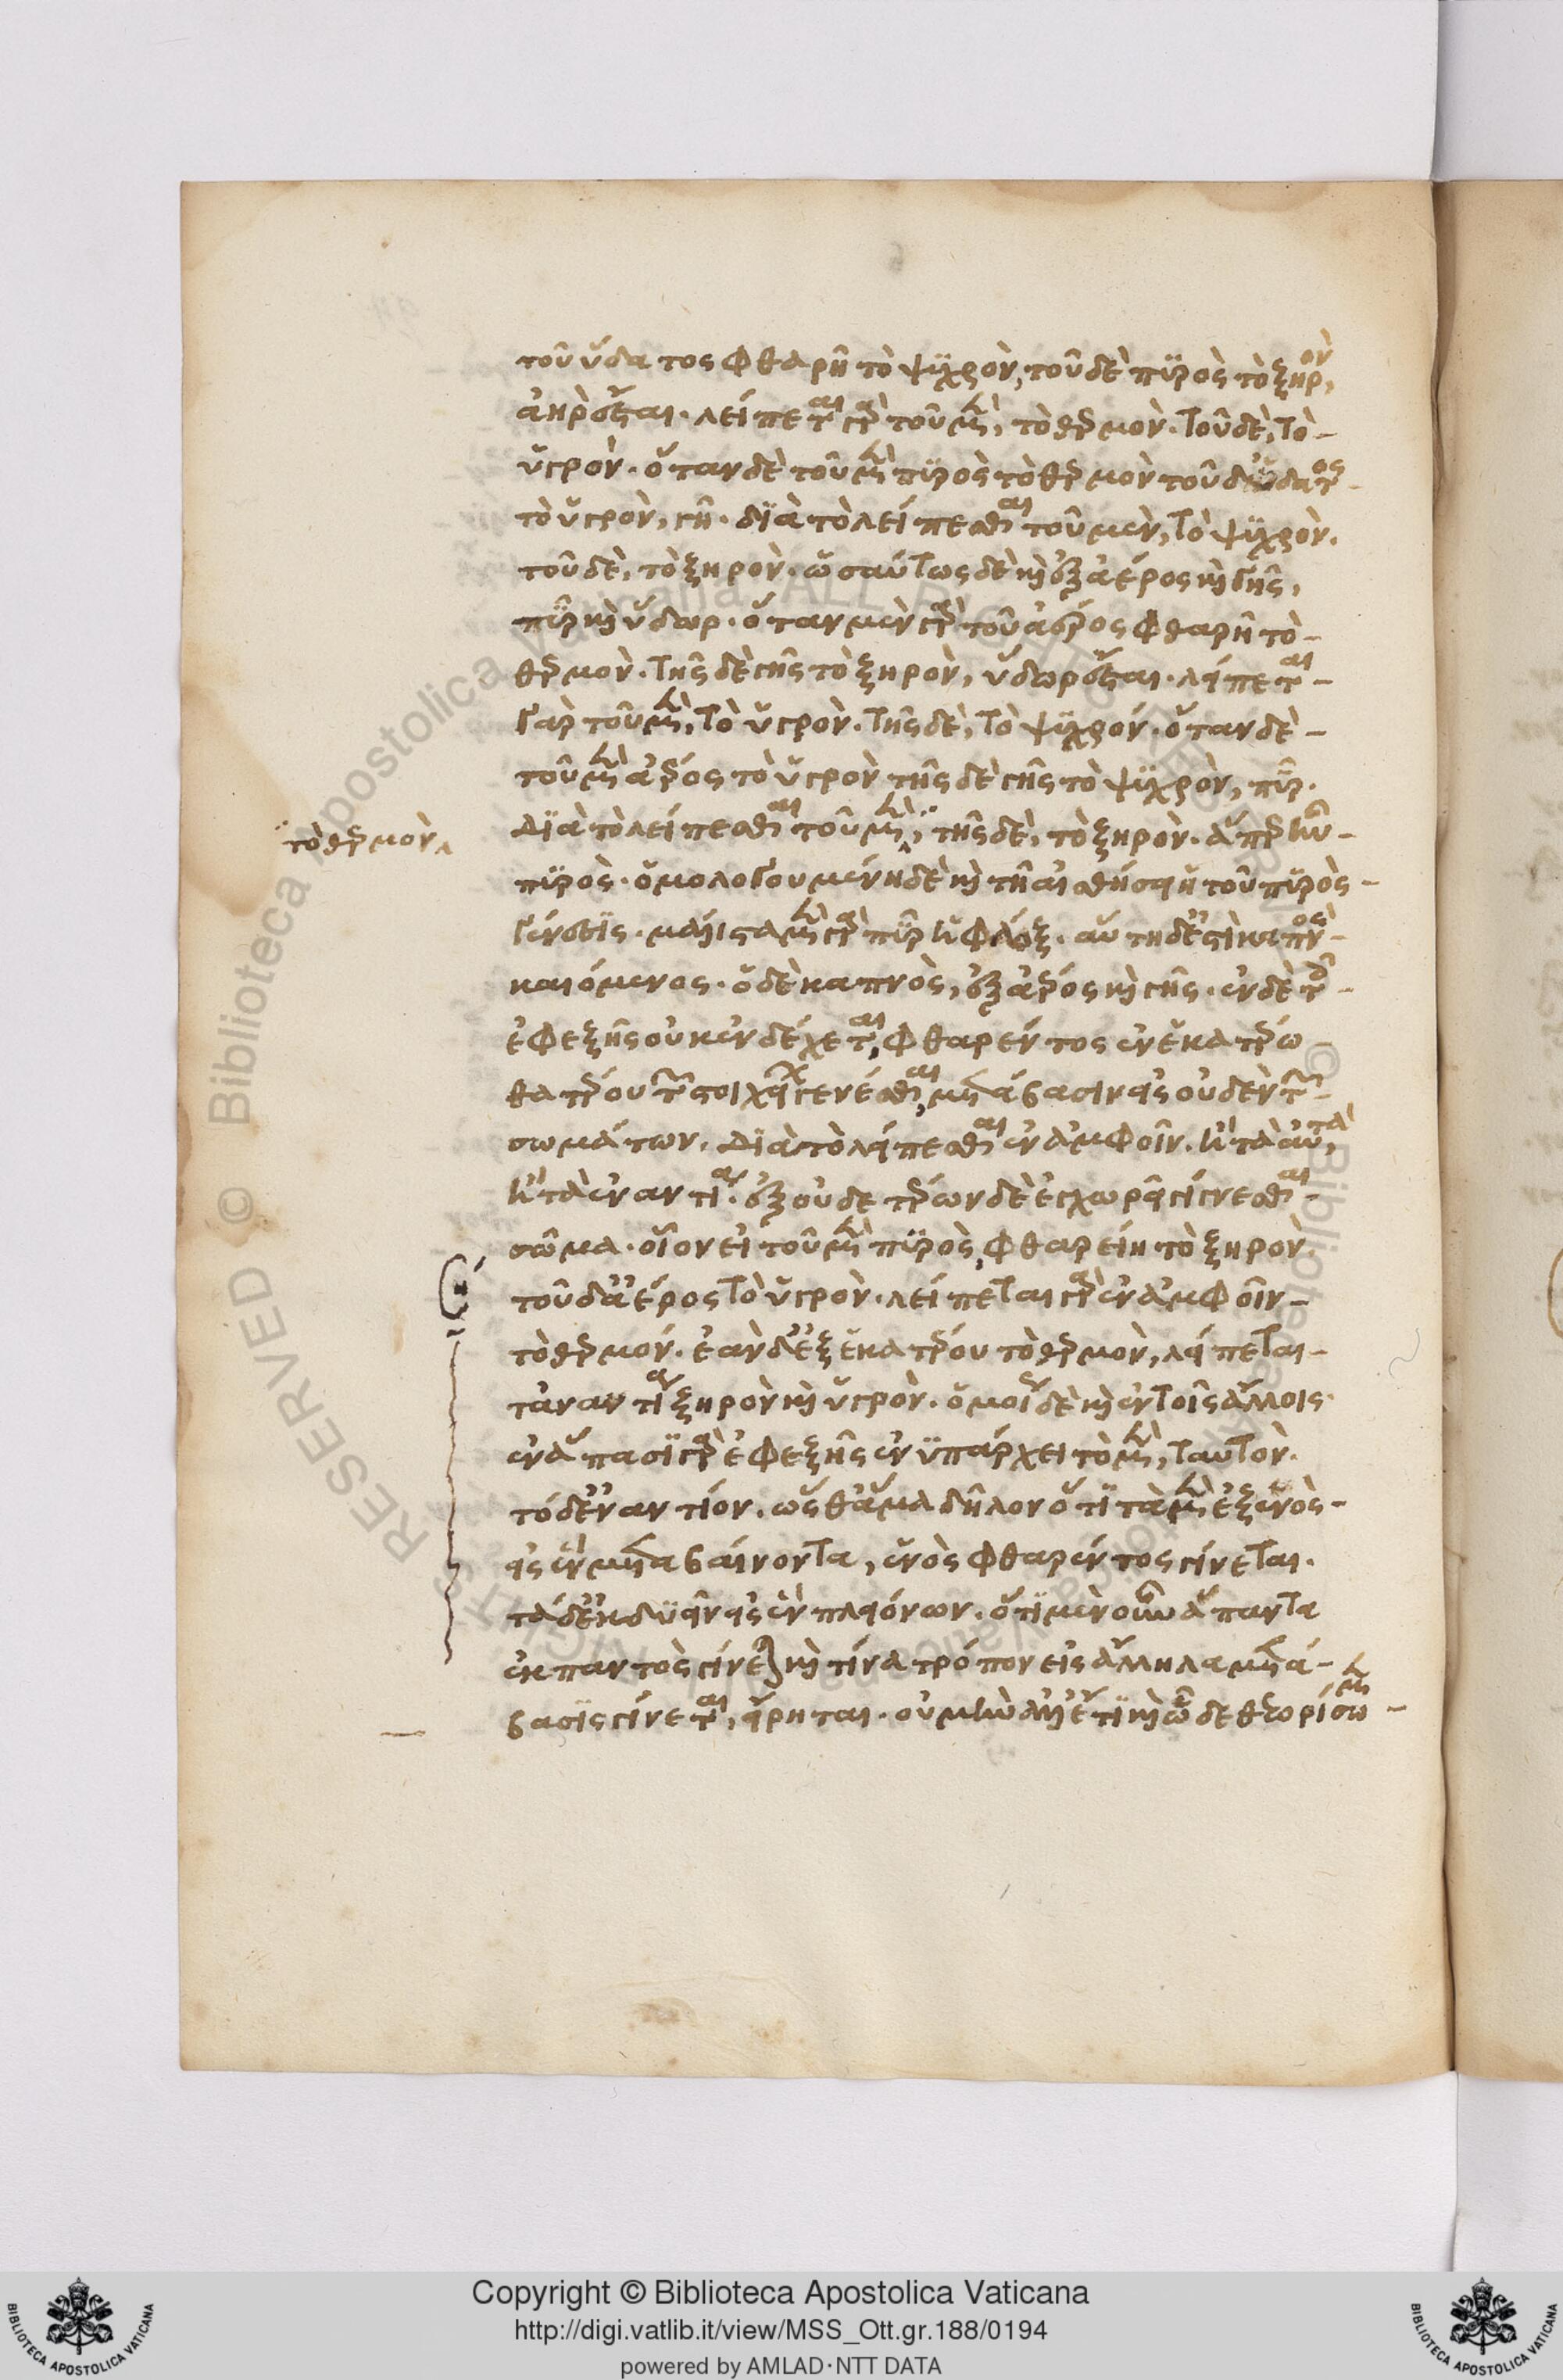 τοῦ ὕδατος φθαρῆ τὸ ψυχρὸν, τοῦ δὲ πυρὸς τὸ ξηρὸν,
ἀὴρ ἔσται. λείπεται γὰρ τοῦ μὲν, τὸ θερμὸν. τοῦ δὲ, τὸ
ὑγρὸν. ὅταν δὲ τοῦ μὲν πυρὸς τὸ θερμὸν τοῦ δ' ὕδατος
τὸ ὑγρὸν, γῆ. διὰ τὸ λείπεσθαι τοῦ μὲν, τὸ ψυχρὸν.
τοῦ δὲ, τὸ ξηρὸν. ὡσαύτως δὲ καὶ ἐξ ἀέρος καὶ γῆς,
πῦρ καὶ ὕδωρ. ὅταν μὲν γὰρ τοῦ ἀέρος φθαρῆ τὸ
θερμὸν. τῆς δὲ γῆς τὸ ξηρὸν, ὕδωρ ἔσται. λείπεται
γὰρ τοῦ μὲν, τὸ ὑγρὸν. τῆς δὲ, τὸ ψυχρόν. ὅταν δὲ
τοῦ μὲν ἀέρος τὸ ὑγρὸν τῆς δὲ γῆς τὸ ψυχρὸν, πῦρ.
τὸ θερμὸν
διὰ τὸ λείπεσθαι τοῦ μὲν, τῆς δὲ, τὸ ξηρὸν. ἅπερ ἦν
πυρὸς. ὁμολογουμένη δὲ καὶ τῆ αἰσθήσει ἡ τοῦ πυρὸς
γένεσις. μάλιστα μὲν γὰρ πῦρ ἡ φλόξ. αὕτη δ' ἐστὶ καπνὸς
καιόμενος. ὁ δὲ καπνὸς, ἐξ ἀέρος καὶ γῆς. ἐν δὲ τοῖς
ἐφεξῆς οὐκ ἐνδέχεται, φθαρέντος ἐν ἑκατέρω
θατέρου τῶν στοιχείων γενέσθαι, μετάβασιν εἰς οὐδὲν τῶν
σωμάτων. διὰ τὸ λείπεσθαι ἐν ἀμφοῖν. ἢ τὰ αὐτὰ,
ἢ τὰ ἐναντία. ἐξ οὐδετέρων δὲ ἐγχωρεῖ γίγνεσθαι
σῶμα. οἷον εἰ τοῦ μὲν πυρὸς, φθαρείη τὸ ξηρὸν,
τοῦ δ' ἀέρος τὸ ὑγρὸν. λείπεται γὰρ ἐν ἀμφοῖν
τὸ θερμόν. ἐὰν δ' ἐξ ἑκατέρου τὸ θερμὸν, λείπεται
τἀναντία ξηρὸν καὶ ὑγρὸν. ὁμοίως δὲ καὶ ἐν τοῖς ἄλλοις.
ἐν ἅπασι γὰρ ἐφεξῆς ἐνυπάρχει τὸ μὲν, ταυτὸν.
τὸ δ' ἐναντίον. ὥσθ' ἅμα δῆλον ὅτι τὰ μὲν ἐξ ἑνὸς
εἰς ἓν μεταβαίνοντα, ἑνὸς φθαρέντος γίνεται.
τὰ δ' ἐκ δυεῖν εἰς ἓν πλειόνων. ὅτι μὲν οὖν ἅπαντα
ἐκ παντὸς γίνεται καὶ τίνα τρόπον εἰς ἄλληλα μετά-
βασις γίνεται, εἴρηται. οὐ μὴν ἀλλ' ἔτι καὶ ὧδε θεωρήσωμεν
Copyright © Biblioteca Apostolica Vaticana
http://digi.vatlib.it/view/MSS_Ott.gr.188/0194
powered by AMLAD·NTT DATA
BIBLIOTECA APOSTOLICA VATICANA
BIBLIOTECA APOSTOLICA VATICANA